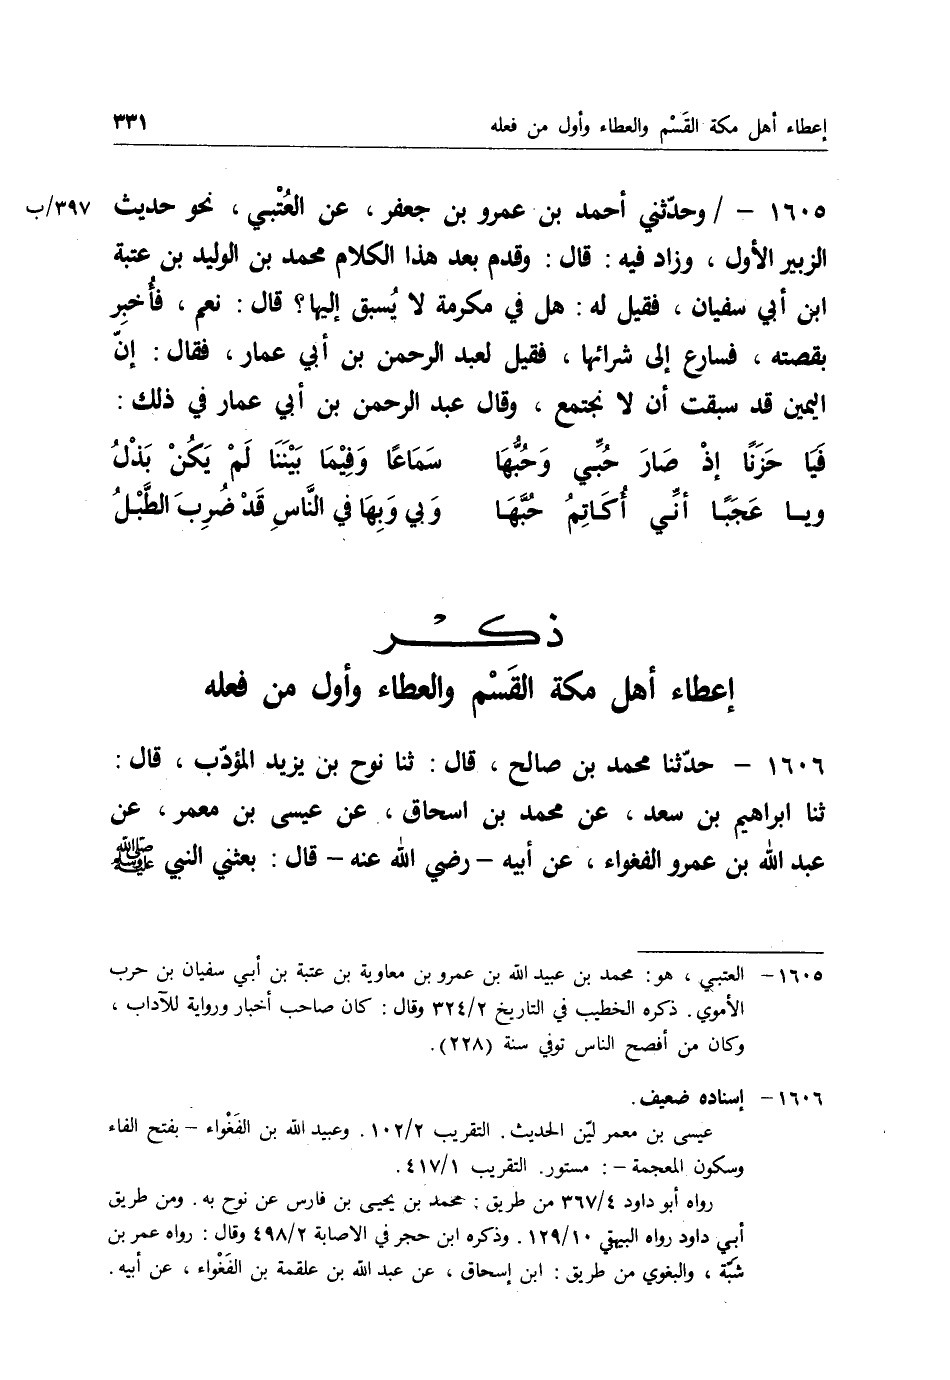 إعطاء أهل مكة القَسْم والعطاء وأول من فعله ٣٣١
١٦٠٥ – / وحدّثني أحمد بن عمرو بن جعفر ، عن العُتْبي ، نحو حديث ٣٩٧/ب
الزبير الأول ، وزاد فيه : قال : وقدم بعد هذا الكلام محمد بن الوليد بن عتبة
ابن أبي سفيان ، فقيل له : هل في مكرمة لا يُسبق إليها؟ قال : نعم ، فأُخبِر
بقصته ، فسارع إلى شرائها ، فقيل لعبد الرحمن بن أبي عمار ، فقال : إنّ
اليمين قد سبقت أن لا نجتمع ، وقال عبد الرحمن بن أبي عمار في ذلك :
فَيَا حَزَنًا إذْ صَارَ حُبِّي وَحُبُّهَا سَمَاعًا وَفِيْمَا بَيْنَنَا لَمْ يَكُنْ بَذْلُ
ويـا عَجَبًـا أنِّـي أُكَـاتِمُ حُبَّهَـا وَبي وَبِهَا في النَّاسِ قَدْ ضُرِبَ الطَّبْلُ
ذكـــر
إعطاء أهل مكة القَسْم والعطاء وأول من فعله
١٦٠٦ – حدّثنا محمد بن صالح ، قال : ثنا نوح بن يزيد المؤدّب ، قال :
ثنا ابراهيم بن سعد ، عن محمد بن اسحاق ، عن عيسى بن معمر ، عن
عبد الله بن عمرو الفغواء ، عن أبيه – رضي الله عنه – قال : بعثني النبي ﷺ
١٦٠٥– العتبي ، هو : محمد بن عبيد الله بن عمرو بن معاوية بن عتبة بن أبي سفيان بن حرب
الأموي . ذكره الخطيب في التاريخ ٣٢٤/٢ وقال : كان صاحب أخبار ورواية للآداب ،
وكان من أفصح الناس توفي سنة (٢٢٨).
١٦٠٦– إسناده ضعيف .
عيسى بن معمر ليّن الحديث . التقريب ١٠٢/٢ . وعبيد الله بن الفَغْواء – بفتح الفاء
وسكون المعجمة – : مستور . التقريب ٤١٧/١ .
رواه أبو داود ٣٦٧/٤ من طريق : محمد بن يحيى بن فارس عن نوح به . ومن طريق
أبي داود رواه البيهقي ١٢٩/١٠ . وذكره ابن حجر في الاصابة ٤٩٨/٢ وقال : رواه عمر بن
شَبّة ، والبغوي من طريق : ابن إسحاق ، عن عبد الله بن علقمة بن الفَغْواء ، عن أبيه .